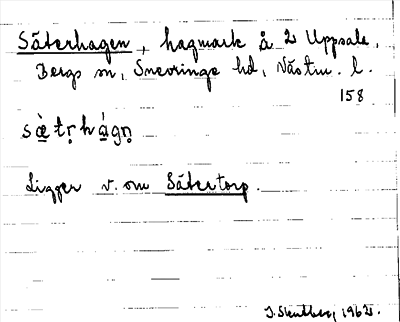 Säterhagen, hagmark å 2 Uppsala,
Bergs sn, Snevringe hd, Västm. l.
158
sæ̀tr̥hágn̥
Ligger v. om Sätertorp.
1962.